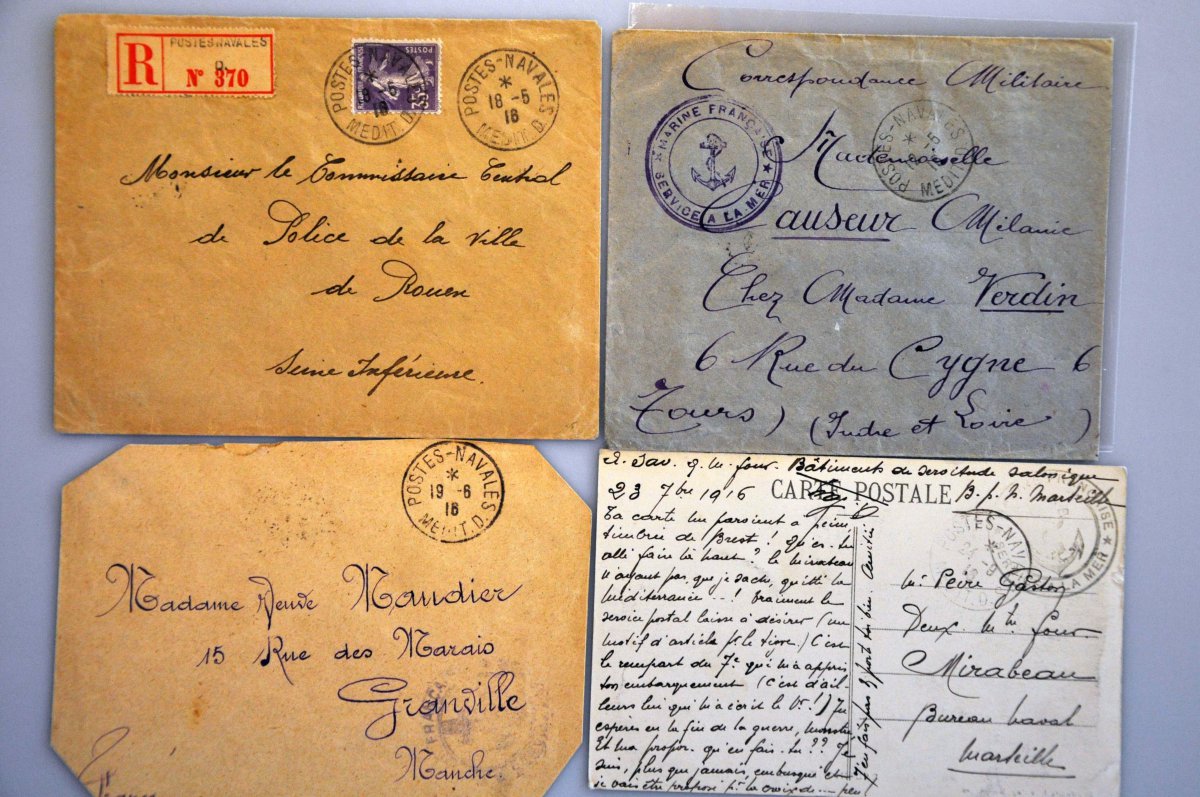 R
POSTES NAVALES
D.
N° 370
POSTES
35
POSTES-NAVALES
*
18-5
16
MEDIT.D.
POSTES-NAVALES
*
18-5
16
MEDIT.D.
Monsieur le Commissaire Central
de Police de la Ville
de Rouen
Seine Inférieure.
Correspondance Militaire
★ MARINE FRANÇAISE ★
SERVICE A LA MER
POSTES-NAVALES
*
MEDIT.D.
Mademoiselle
Causeur Mélanie
Chez Madame Verdin
6 Rue du Cygne 6
Tours) (Indre et Loire)
POSTES-NAVALES
*
19-6
16
MEDIT.D.
Madame Veuve Maudier
15 Rue des Marais
Granville
Manche
France
Bâtiments de servitude Salonique
23 7bre 1916
CARTE POSTALE
B.p.N. Marseille
Ta carte me parvient à peine
timbrée de Brest! Qu'es-tu
allé faire là haut? le Mirabeau
n'ayant pas, que je sache, quitté la
Méditerranée...! Vraiment le
service postal laisse à désirer (un
motif d'article pr. le Tigre.) C'est
le rempart du 7e qui m'a appris
ton embarquement (C'est d'ail
leurs lui qui m'a écrit le 1er!) Tu
espères en la fin de la guerre,
Et ma propos. qu'en fais-tu?? Je
suis, plus que jamais embusqué et
je vais être proposé pr. la croix de
POSTES-NAVALES
*
24-9
A LA MER ★
Mr Peire Gaston
Deux. Me four.
Mirabeau
Bureau naval
Marseille